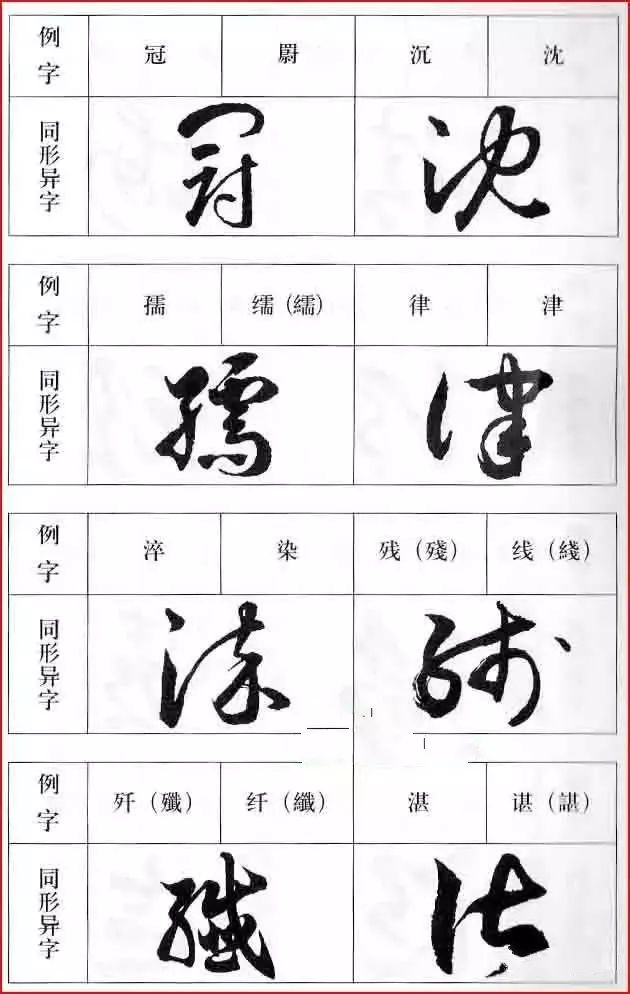 例字 冠 尉 沉 沈
同形异字
例字 孺 𦈡（繻） 律 津
同形异字
例字 淬 染 残（殘） 线（綫）
同形异字
例字 歼（殲） 纤（纖） 湛 谌（諶）
同形异字